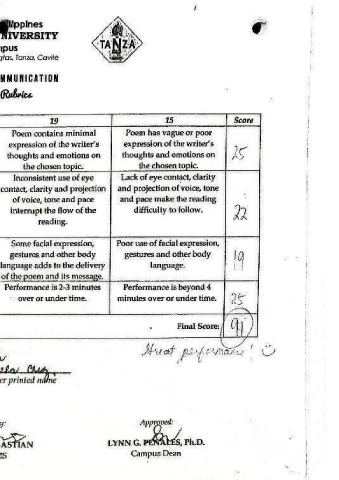 ilippines
NIVERSITY
TANZA
pus
gtas, Tanza, Cavite
MMUNICATION
Rubrics
19 15 Score
Poem contains minimal
expression of the writer's
thoughts and emotions on
the chosen topic.
Poem has vague or poor
expression of the writer's
thoughts and emotions on
the chosen topic.
25
Inconsistent use of eye
contact, clarity and projection
of voice, tone and pace
interrupt the flow of the
reading.
Lack of eye contact, clarity
and projection of voice, tone
and pace make the reading
difficulty to follow.
22
Some facial expression,
gestures and other body
language adds to the delivery
of the poem and its message.
Poor use of facial expression,
gestures and other body
language.
19
Performance is 2-3 minutes
over or under time.
Performance is beyond 4
minutes over or under time.
25
Final Score: 91
Great performance!
Cruz
er printed name
y:
ASTIAN
ES
Approved:
LYNN G. PENALES, Ph.D.
Campus Dean